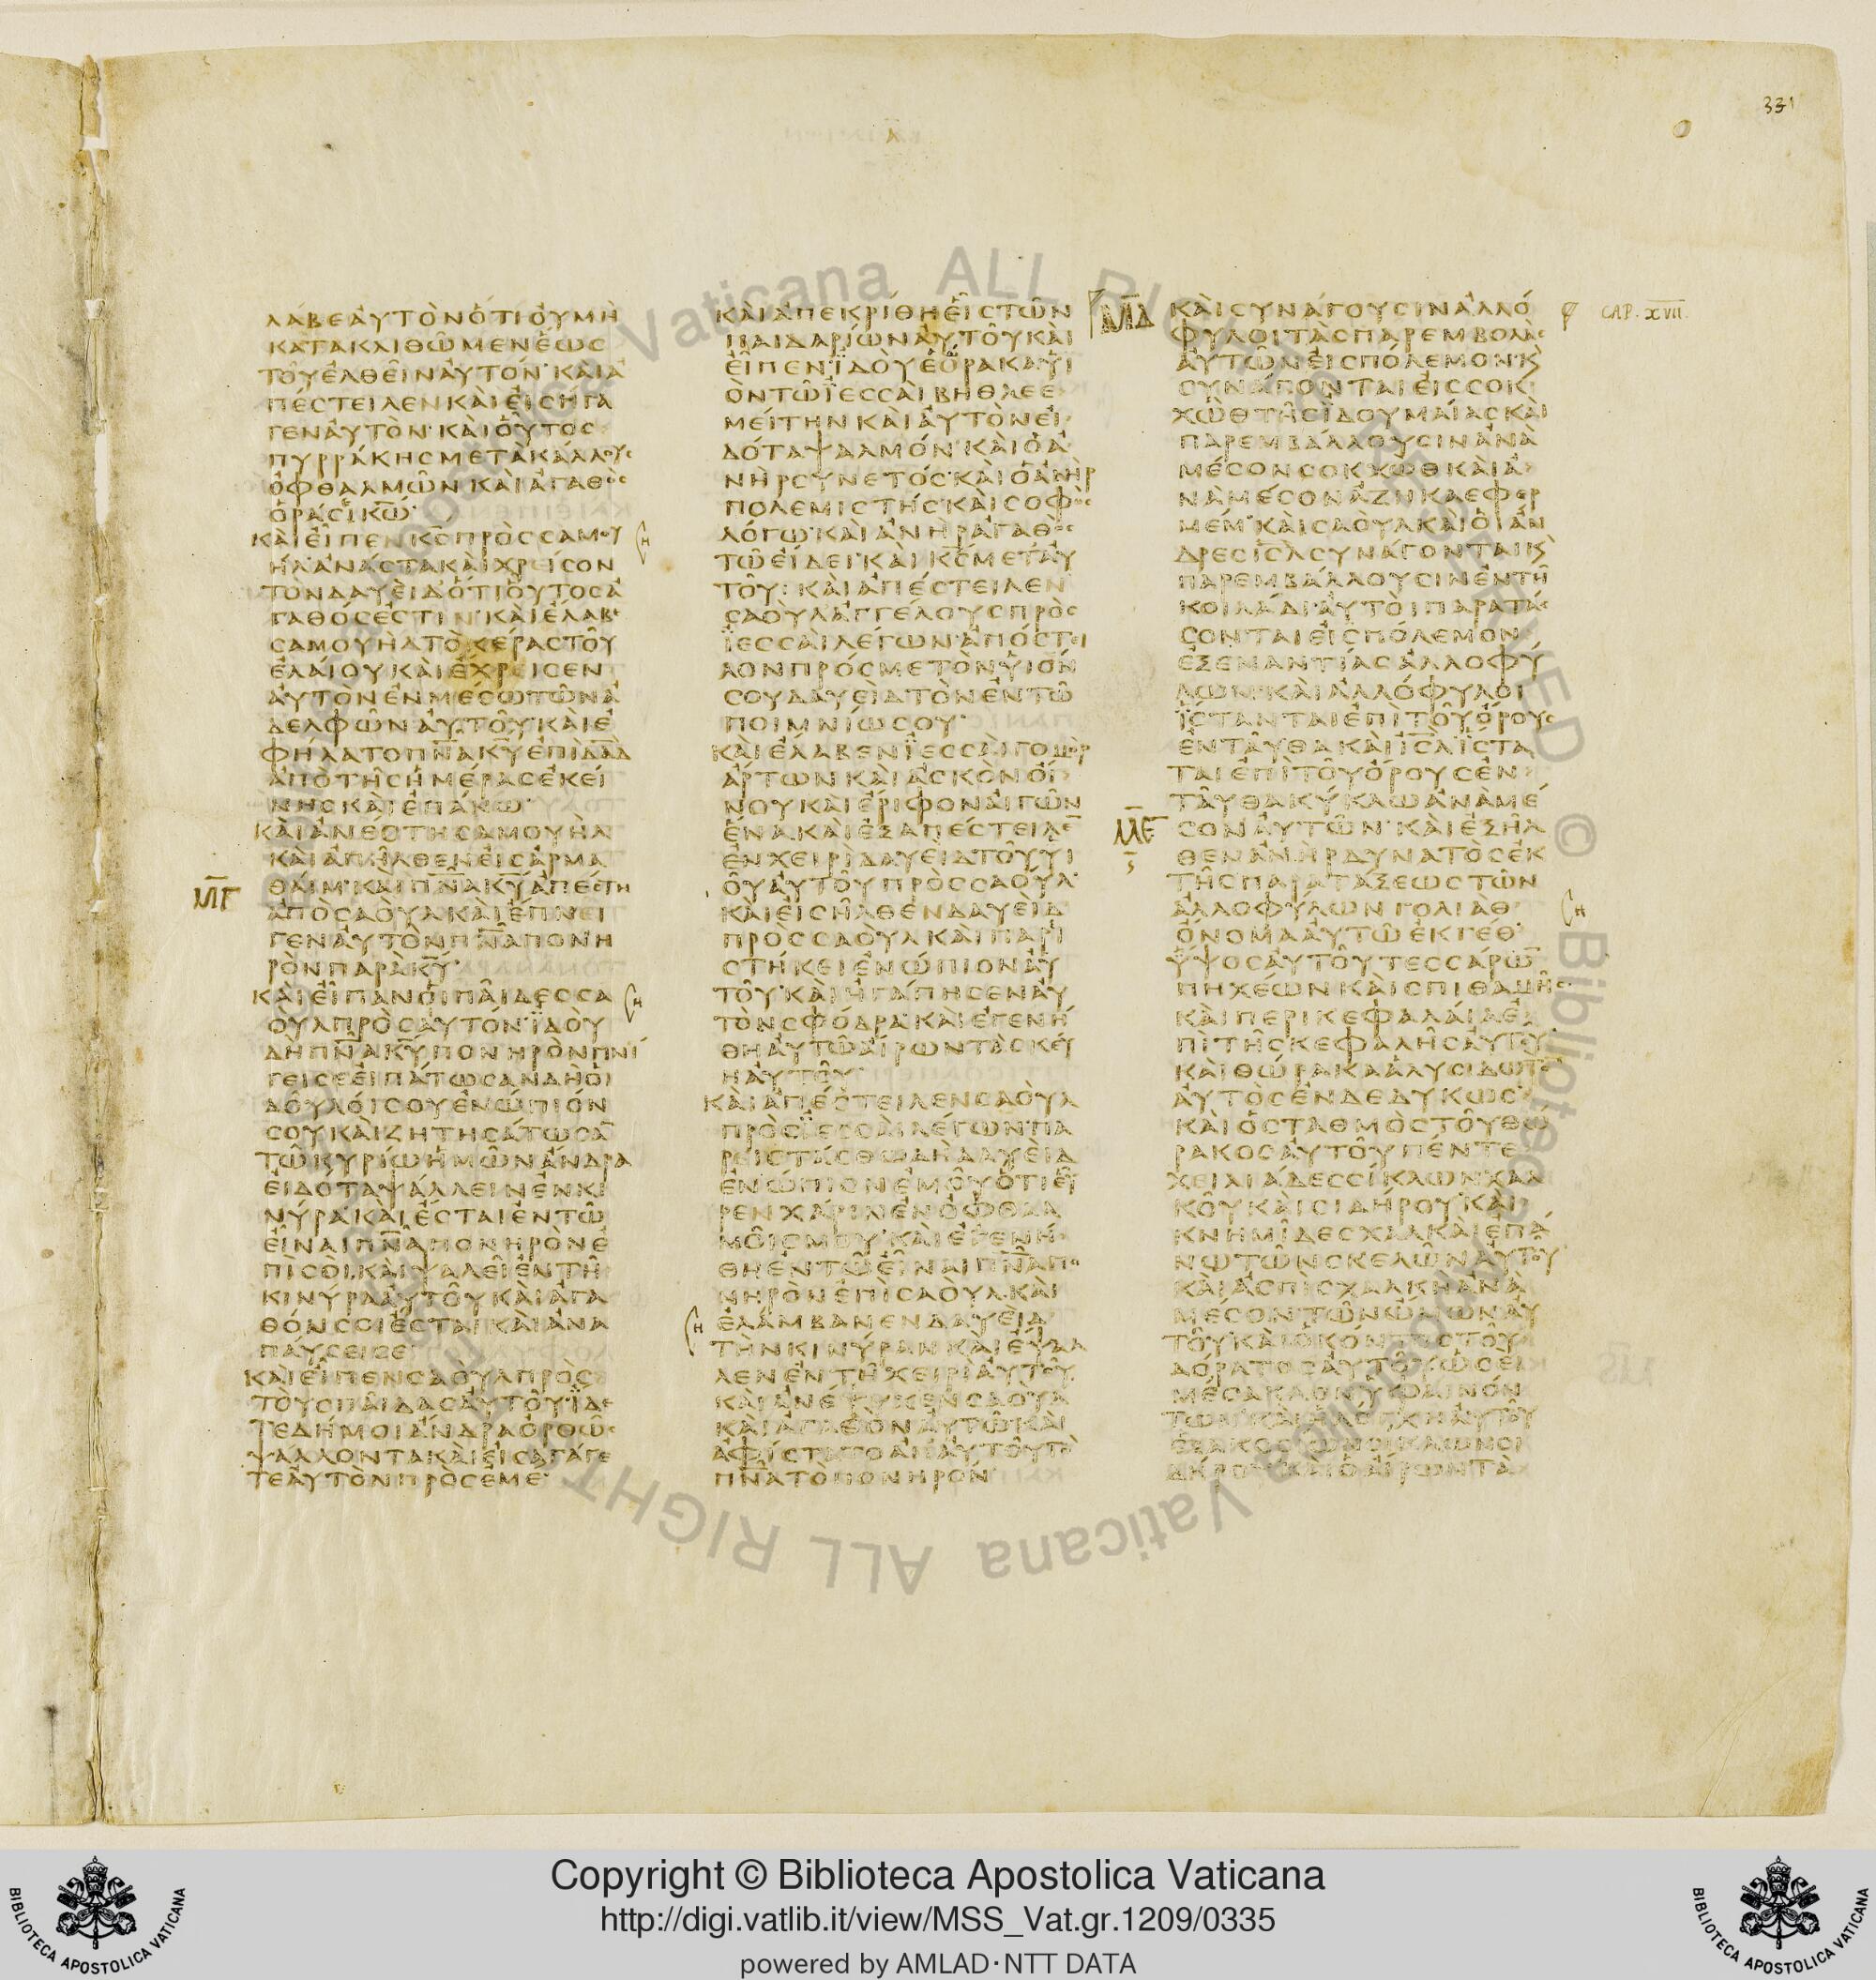 331
ΛΑΒΕΑΥΤΟΝΟΤΙΟΥΜΗ
ΚΑΤΑΚΛΙΘΩΜΕΝΕΩϹ
ΤΟΥΕΛΘΕΙΝΑΥΤΟΝ·ΚΑΙΑ
ΠΕϹΤΕΙΛΕΝΚΑΙΕΙϹΗΓΑ
ΓΕΝΑΥΤΟΝ·ΚΑΙΟΥΤΟϹ
ΠΥΡΡΑΚΗϹΜΕΤΑΚΑΛΛΟΥϹ
ΟΦΘΑΛΜΩΝ·ΚΑΙΑΓΑΘΟϹ
ΟΡΑϹΙΚΩ̅·
ΚΑΙΕΙΠΕΝΚ̅Ϲ̅ΠΡΟϹϹΑΜΟΥ
ΗΛ·ΑΝΑϹΤΑΚΑΙΧΡΕΙϹΟΝ
ΤΟΝΔΑΥΕΙΔΟΤΙΟΥΤΟϹΑ
ΓΑΘΟϹΕϹΤΙΝ·ΚΑΙΕΛΑΒΕ
ϹΑΜΟΥΗΛΤΟΚΕΡΑϹΤΟΥ
ΕΛΑΙΟΥΚΑΙΕΧΡΕΙϹΕΝ
ΑΥΤΟΝΕΝΜΕϹΩΤΩΝΑ
ΔΕΛΦΩΝΑΥΤΟΥ·ΚΑΙΕ
ΦΗΛΑΤΟΠ̅Ν̅Α̅Κ̅Υ̅ΕΠΙΔ̅Α̅Δ̅
ΑΠΟΤΗϹΗΜΕΡΑϹΕΚΕΙ
ΝΗϹΚΑΙΕΠΑΝΩ·
ΚΑΙΑΝΕϹΤΗϹΑΜΟΥΗΛ
ΚΑΙΑΠΗΛΘΕΝΕΙϹΑΡΜΑ
Μ̅Γ̅ ΘΑΙΜ·ΚΑΙΠ̅Ν̅Α̅Κ̅Υ̅ΑΠΕϹΤΗ
ΑΠΟϹΑΟΥΛΚΑΙΕΠΝΕΙ
ΓΕΝΑΥΤΟΝΠ̅Ν̅Α̅ΠΟΝΗ
ΡΟΝΠΑΡΑΚ̅Υ̅·
ΚΑΙΕΙΠΑΝΟΙΠΑΙΔΕϹϹΑ
ΟΥΛΠΡΟϹΑΥΤΟΝ·ΪΔΟΥ
ΔΗΠ̅Ν̅Α̅Κ̅Υ̅ΠΟΝΗΡΟΝΠΝΙ
ΓΕΙϹΕΕΙΠΑΤΩϹΑΝΔΗΟΙ
ΔΟΥΛΟΙϹΟΥΕΝΩΠΙΟΝ
ϹΟΥΚΑΙΖΗΤΗϹΑΤΩϹΑ̅
ΤΩΚΥΡΙΩΗΜΩΝΑΝΔΡΑ
ΕΙΔΟΤΑΨΑΛΛΕΙΝΕΝΚΙ
ΝΥΡΑ·ΚΑΙΕϹΤΑΙΕΝΤΩ
ΕΙΝΑΙΠ̅Ν̅Α̅ΠΟΝΗΡΟΝΕ
ΠΙϹΟΙ·ΚΑΙΨΑΛΕΙΕΝΤΗ
ΚΙΝΥΡΑΑΥΤΟΥΚΑΙΑΓΑ
ΘΟΝϹΟΙΕϹΤΑΙΚΑΙΑΝΑ
ΠΑΥϹΕΙϹΕ·
ΚΑΙΕΙΠΕΝϹΑΟΥΛΠΡΟϹ
ΤΟΥϹΠΑΙΔΑϹΑΥΤΟΥ·ΪΔΕ
ΤΕΔΗΜΟΙΑΝΔΡΑΟΡΘΩϹ
ΨΑΛΛΟΝΤΑΚΑΙΕΙϹΑΓΑΓΕ
ΤΕΑΥΤΟΝΠΡΟϹΕΜΕ·
ΚΑΙΑΠΕΚΡΙΘΗΕΙϹΤΩΝ
ΠΑΙΔΑΡΙΩΝΑΥΤΟΥΚΑΙ
ΕΙΠΕΝ·ΪΔΟΥΕΟΡΑΚΑΥΙ
ΟΝΤΩΪΕϹϹΑΙΒΗΘΛΕΕ
ΜΕΙΤΗΝΚΑΙΑΥΤΟΝΕΙ
ΔΟΤΑΨΑΛΜΟΝ·ΚΑΙΟΑ
ΝΗΡϹΥΝΕΤΟϹ·ΚΑΙΟΑΝΗΡ
ΠΟΛΕΜΙϹΤΗϹ·ΚΑΙϹΟΦΟϹ
ΛΟΓΩ·ΚΑΙΑΝΗΡΑΓΑΘΟϹ
ΤΩΕΙΔΕΙ·ΚΑΙΚ̅Ϲ̅ΜΕΤΑΥ
ΤΟΥ:ΚΑΙΑΠΕϹΤΕΙΛΕΝ
ϹΑΟΥΛΑΓΓΕΛΟΥϹΠΡΟϹ
ΪΕϹϹΑΙΛΕΓΩΝ·ΑΠΟϹΤΕΙ
ΛΟΝΠΡΟϹΜΕΤΟΝΥΙΟΝ
ϹΟΥΔΑΥΕΙΔΤΟΝΕΝΤΩ
ΠΟΙΜΝΙΩϹΟΥ·
ΚΑΙΕΛΑΒΕΝΪΕϹϹΑΙΓΟΜΟΡ
ΑΡΤΩΝΚΑΙΑϹΚΟΝΟΙ
ΝΟΥΚΑΙΕΡΙΦΟΝΑΙΓΩΝ
ΕΝΑΚΑΙΕΞΑΠΕϹΤΕΙΛΕ̅
ΕΝΧΕΙΡΙΔΑΥΕΙΔΤΟΥΥΙ
ΟΥΑΥΤΟΥΠΡΟϹϹΑΟΥΛ·
ΚΑΙΕΙϹΗΛΘΕΝΔΑΥΕΙΔ
ΠΡΟϹϹΑΟΥΛΚΑΙΠΑΡΙ
ϹΤΗΚΕΙΕΝΩΠΙΟΝΑΥ
ΤΟΥ·ΚΑΙΗΓΑΠΗϹΕΝΑΥ
ΤΟΝϹΦΟΔΡΑ·ΚΑΙΕΓΕΝΗ
ΘΗΑΥΤΩΑΙΡΩΝΤΑϹΚΕΥ
ΗΑΥΤΟΥ·
ΚΑΙΑΠΕϹΤΕΙΛΕΝϹΑΟΥΛ
ΠΡΟϹΪΕϹϹΑΙΛΕΓΩΝ·ΠΑ
ΡΕΙϹΤΑϹΘΩΔΗΔΑΥΕΙΔ
ΕΝΩΠΙΟΝΕΜΟΥΟΤΙΕΥ
ΡΕΝΧΑΡΙΝΕΝΟΦΘΑΛ
ΜΟΙϹΜΟΥ·ΚΑΙΕΓΕΝΗ
ΘΗΕΝΤΩΕΙΝΑΙΠ̅Ν̅Α̅ΠΟ
ΝΗΡΟΝΕΠΙϹΑΟΥΛ·ΚΑΙ
ΕΛΑΜΒΑΝΕΝΔΑΥΕΙΔ
ΤΗΝΚΙΝΥΡΑΝΚΑΙΕΨΑΛ
ΛΕΝΕΝΤΗΧΕΙΡΙΑΥΤΟΥ
ΚΑΙΑΝΕΨΥΧΕΝϹΑΟΥΛ
ΚΑΙΑΓΑΘΟΝΑΥΤΩΚΑΙ
ΑΦΙϹΤΑΤΟΑΠΑΥΤΟΥΤΟ
Π̅Ν̅Α̅ΤΟΠΟΝΗΡΟΝ·
Μ̅Δ̅ ΚΑΙϹΥΝΑΓΟΥϹΙΝΑΛΛΟ CAP. XVII.
ΦΥΛΟΙΤΑϹΠΑΡΕΜΒΟΛΑϹ
ΑΥΤΩΝΕΙϹΠΟΛΕΜΟΝ·Κ
ϹΥΝΑΓΟΝΤΑΙΕΙϹϹΟΚ
ΧΩΘΤΗϹΪΔΟΥΜΑΙΑϹΚΑΙ
ΠΑΡΕΜΒΑΛΛΟΥϹΙΝΑΝΑ
ΜΕϹΟΝϹΟΚΧΩΘΚΑΙΑ
ΝΑΜΕϹΟΝΑΖΗΚΑΕΦΕΡ
ΜΕΜ·ΚΑΙϹΑΟΥΛΚΑΙΟΙΑΝ
ΔΡΕϹΙ̅Ϲ̅Λ̅ϹΥΝΑΓΟΝΤΑΙΚ
ΠΑΡΕΜΒΑΛΛΟΥϹΙΝΕΝΤΗ
ΚΟΙΛΑΔΙ·ΑΥΤΟΙΠΑΡΑΤΑϹ
ϹΟΝΤΑΙΕΙϹΠΟΛΕΜΟΝ
ΕΞΕΝΑΝΤΙΑϹΑΛΛΟΦΥ
ΛΩΝ·ΚΑΙΑΛΛΟΦΥΛΟΙ
ΪϹΤΑΝΤΑΙΕΠΙΤΟΥΟΡΟΥϹ
ΕΝΤΑΥΘΑΚΑΙΙ̅Ϲ̅Λ̅ΪϹΤΑ
ΤΑΙΕΠΙΤΟΥΟΡΟΥϹΕΝ
ΤΑΥΘΑΚΥΚΛΩΑΝΑΜΕ
Μ̅Ε̅ ϹΟΝΑΥΤΩΝ·ΚΑΙΕΞΗΛ
ΘΕΝΑΝΗΡΔΥΝΑΤΟϹΕΚ
ΤΗϹΠΑΡΑΤΑΞΕΩϹΤΩΝ
ΑΛΛΟΦΥΛΩΝΓΟΛΙΑΘ
ΟΝΟΜΑΑΥΤΩΕΚΓΕΘ·
ΥΨΟϹΑΥΤΟΥΤΕϹϹΑΡΩ̅
ΠΗΧΕΩΝΚΑΙϹΠΙΘΑΜΗϹ
ΚΑΙΠΕΡΙΚΕΦΑΛΑΙΑΕ
ΠΙΤΗϹΚΕΦΑΛΗϹΑΥΤΟΥ
ΚΑΙΘΩΡΑΚΑΑΛΥϹΙΔΩΤΟ̅
ΑΥΤΟϹΕΝΔΕΔΥΚΩϹ·
ΚΑΙΟϹΤΑΘΜΟϹΤΟΥΘΩ
ΡΑΚΟϹΑΥΤΟΥΠΕΝΤΕ
ΧΕΙΛΙΑΔΕϹϹΙΚΛΩΝΧΑΛ
ΚΟΥΚΑΙϹΙΔΗΡΟΥ·ΚΑΙ
ΚΝΗΜΙΔΕϹΧΑΛΚΑΙΕΠΑ
ΝΩΤΩΝϹΚΕΛΩΝΑΥΤΟΥ
ΚΑΙΑϹΠΙϹΧΑΛΚΗΑΝΑ
ΜΕϹΟΝΤΩΝΩΜΩΝΑΥ
ΤΟΥ·ΚΑΙΟΚΟΝΤΟϹΤΟΥ
ΔΟΡΑΤΟϹΑΥΤΟΥΩϹΕΙ
ΜΕϹΑΚΛΟΝΥΦΑΙΝΟΝ
ΤΩΝ·ΚΑΙΗΛΟΓΧΗΑΥΤΟΥ
ΕΞΑΚΟϹΙΩΝϹΙΚΛΩΝϹΙ
ΔΗΡΟΥ·ΚΑΙΟΑΙΡΩΝΤΑ
Copyright © Biblioteca Apostolica Vaticana
http://digi.vatlib.it/view/MSS_Vat.gr.1209/0335
powered by AMLAD·NTT DATA
BIBLIOTECA APOSTOLICA VATICANA
BIBLIOTECA APOSTOLICA VATICANA